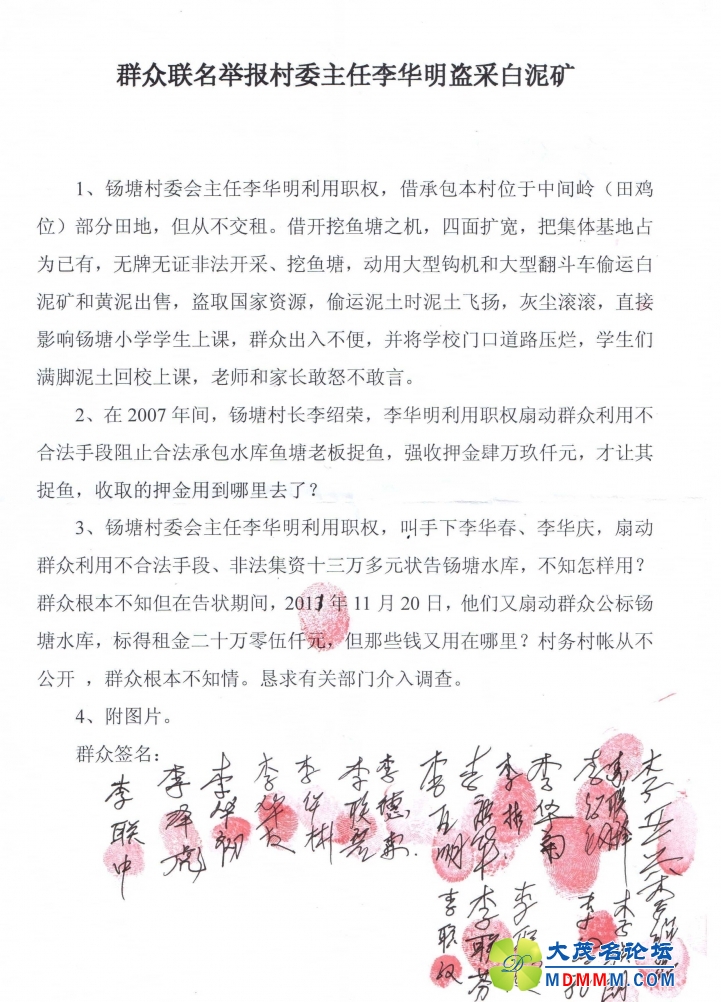 群众联名举报村委主任李华明盗采白泥矿
1、钖塘村委会主任李华明利用职权，借承包本村位于中间岭（田鸡
位）部分田地，但从不交租。借开挖鱼塘之机，四面扩宽，把集体基地占
为已有，无牌无证非法开采、挖鱼塘，动用大型钩机和大型翻斗车偷运白
泥矿和黄泥出售，盗取国家资源，偷运泥土时泥土飞扬，灰尘滚滚，直接
影响钖塘小学学生上课，群众出入不便，并将学校门口道路压烂，学生们
满脚泥土回校上课，老师和家长敢怒不敢言。
2、在 2007 年间，钖塘村长李绍荣，李华明利用职权扇动群众利用不
合法手段阻止合法承包水库鱼塘老板捉鱼，强收押金肆万玖仟元，才让其
捉鱼，收取的押金用到哪里去了？
3、钖塘村委会主任李华明利用职权，叫手下李华春、李华庆，扇动
群众利用不合法手段、非法集资十三万多元状告钖塘水库，不知怎样用？
群众根本不知但在告状期间，2011 年 11 月 20 日，他们又扇动群众公标钖
塘水库，标得租金二十万零伍仟元，但那些钱又用在哪里？村务村帐从不
公开 ，群众根本不知情。恳求有关部门介入调查。
4、附图片。
群众签名：
李联中
李泽虎
李华
李华
李华彬
李联
李德
李
李
李
李华南
李
李联
李联芬
大茂名论坛
MDMMM.COM